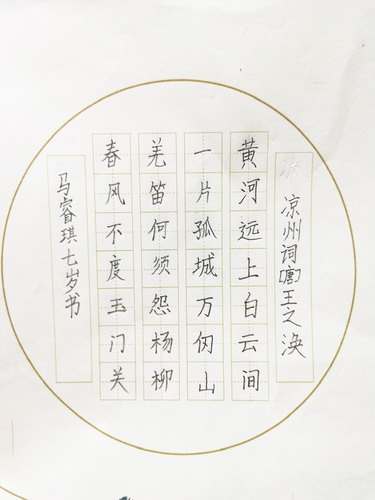 凉州词[唐]王之涣
黄河远上白云间
一片孤城万仞山
羌笛何须怨杨柳
春风不度玉门关
马睿琪七岁书